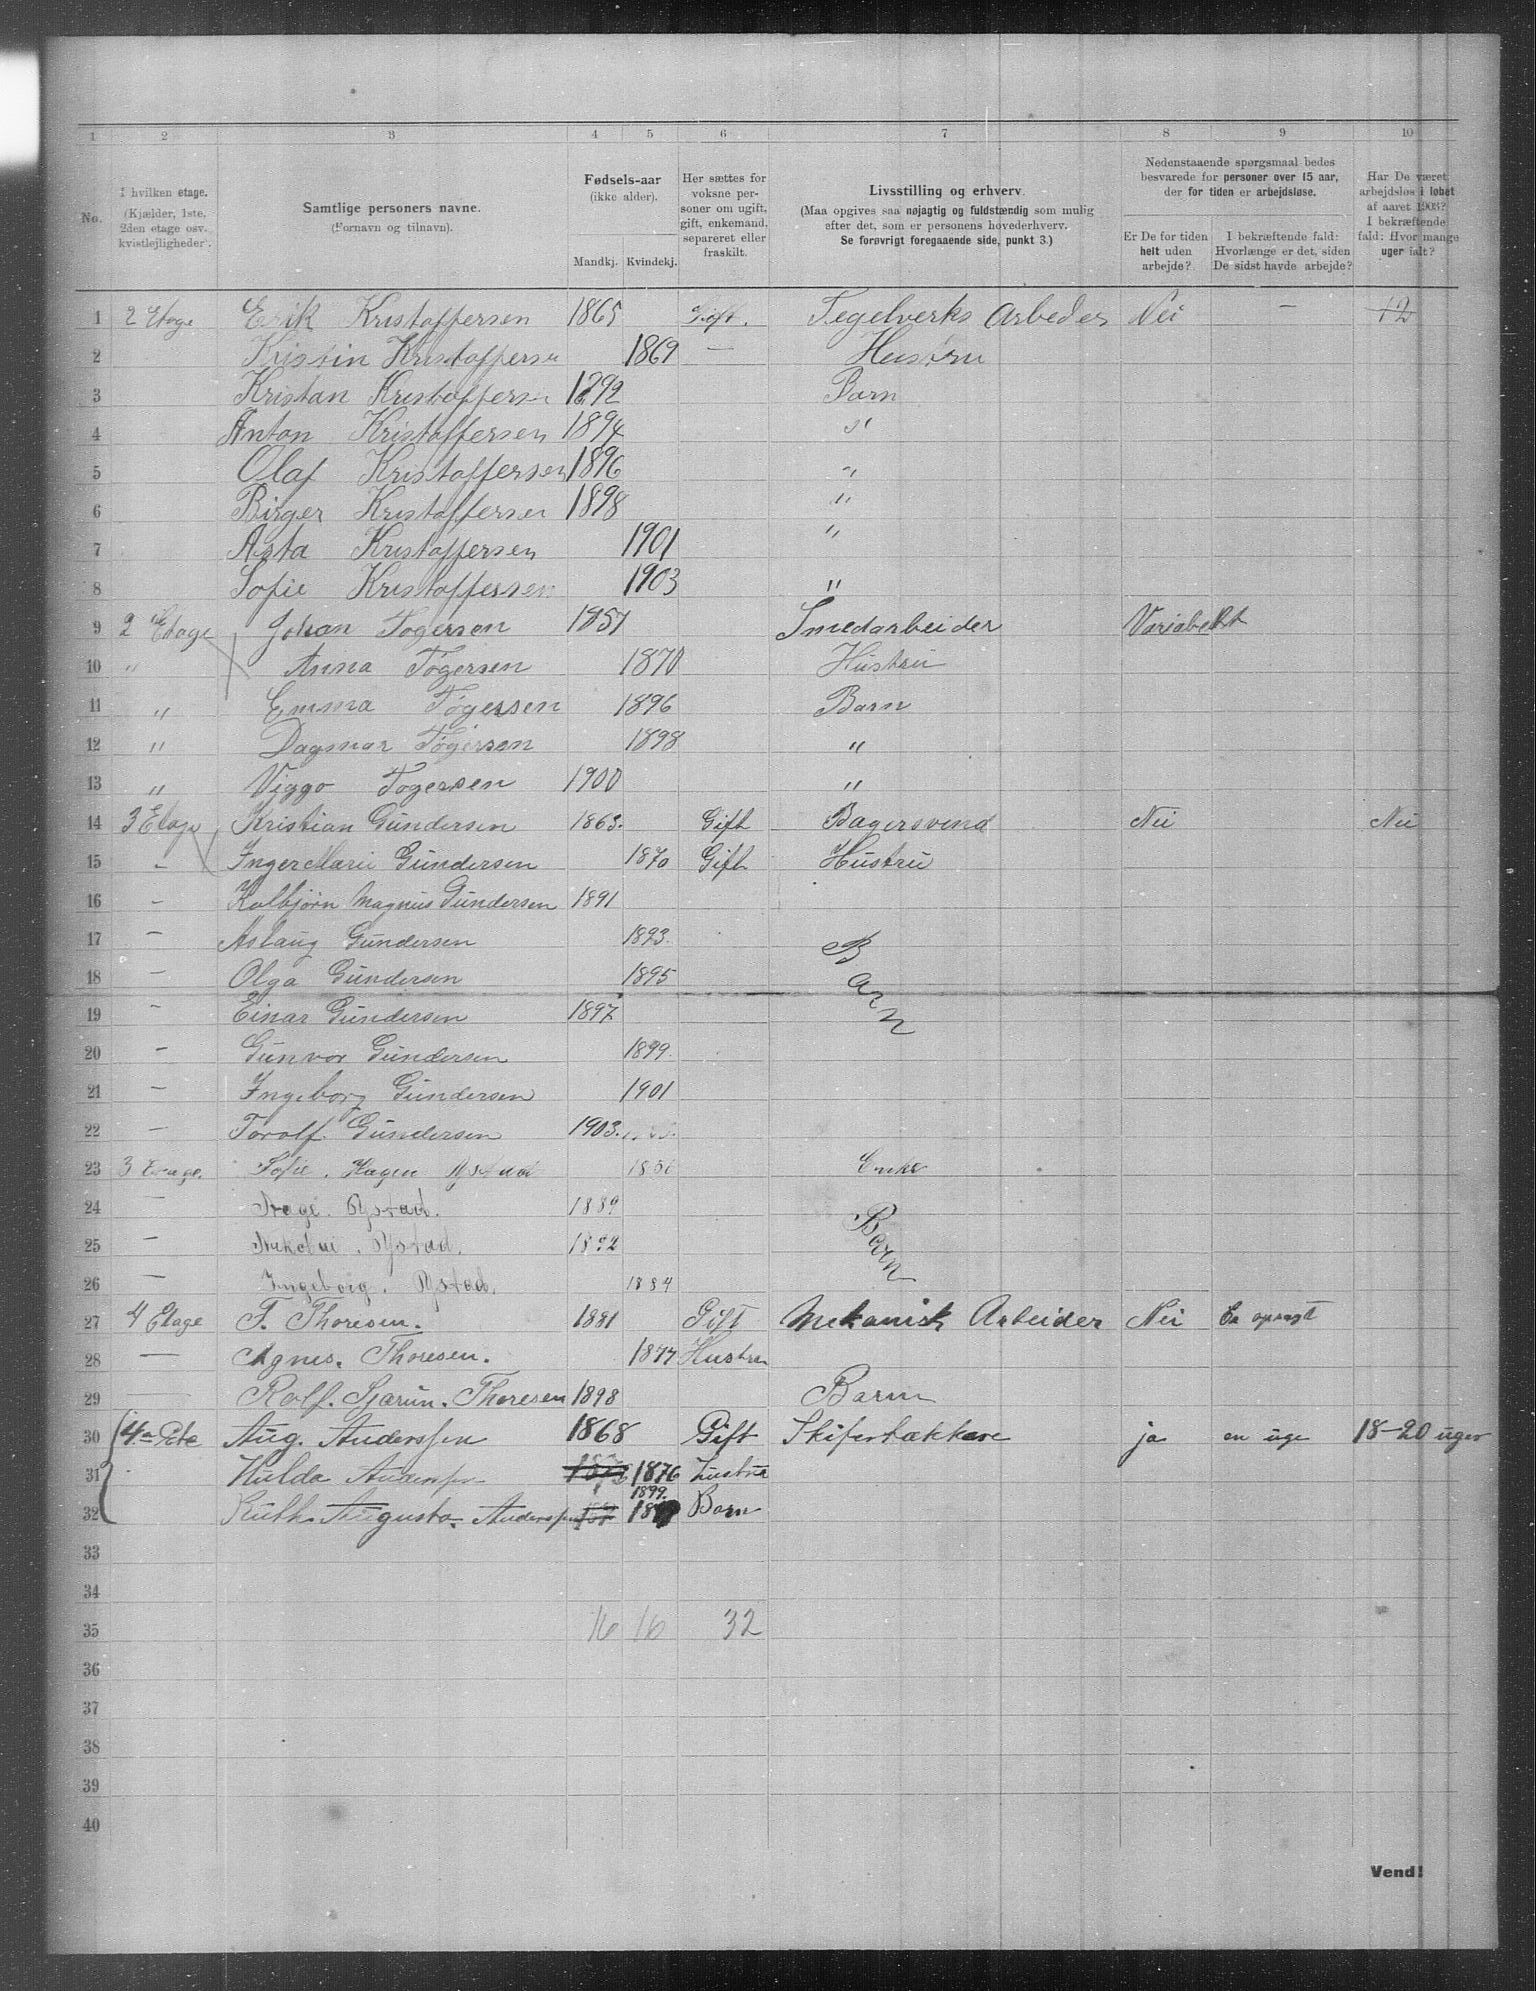 1 2 3 4 5 6 7 8 9 10
No.
I hvilken etage.
(Kjælder, 1ste,
2den etage osv.
kvistlejligheder).
Samtlige personers navne.
(Fornavn og tilnavn).
Fødsels-aar
(ikke alder).
Mandkj. Kvindekj.
Her sættes for
voksne per-
soner om ugift,
gift, enkemand,
separeret eller
fraskilt.
Livsstilling og erhverv.
(Maa opgives saa nøjagtig og fuldstændig som mulig
efter det, som er personens hovederhverv.
Se forøvrigt foregaaende side, punkt 3.)
Nedenstaaende spørgsmaal bedes
besvarede for personer over 15 aar,
der for tiden er arbejdsløse.
Er De for tiden
helt uden
arbejde?
I bekræftende fald:
Hvorlænge er det, siden
De sidst havde arbejde?
Har De været
arbejdsløs i løbet
af aaret 1903?
I bekræftende
fald: Hvor mange
uger ialt?
1 2 Etage Erik Kristoffersen 1865 Gift. Tegelverks Arbeder Nei — 12
2 Kristin Kristoffersen 1869 — Hustru
3 Kristan Kristoffersen 1892 Barn
4 Anton Kristoffersen 1894 "
5 Olaf Kristoffersen 1896 "
6 Birger Kristoffersen 1898 "
7 Asta Kristoffersen 1901 "
8 Sofie Kristoffersen 1903 "
9 2 Etage Johan Togersen 1857 Smedarbeider
10 " Anna Tøgersen 1870 Hustru
11 " Emma Tøgersen 1896 Barn
12 " Dagmar Tøgersen 1898 "
13 " Viggo Togersen 1900 "
14 3 Etage Kristian Gundersen 1863. Gift Bagersvend Nei Nei
15 - Inger Marie Gundersen 1870 Gift Hustru
16 - Kolbjørn Magnus Gundersen 1891
17 - Aslaug Gundersen 1893. Barn
18 - Olga Gundersen 1895
19 - Einar Gundersen 1897
20 - Gunvor Gundersen 1899.
21 - Ingeborg Gundersen 1901
22 - Torolf Gundersen 1903.
23 3 Etage. Sofie. Hagen Ystad Enke
24 - Aage. Ystad. 1889 Barn
25 - Nikolai. Ystad.
26 - Ingeborg. Ystad. 1884
27 4 Etage F. Thoresen. Gift Mekanisk Arbeider Nei
28 — Agnes. Thoresen. 1877 Hustru
29 — Rolf. Thoresen 1898 Barn
30 Aug. Anderssen 1868 Gift Skifertækkere ja en uge 18-20 uger
31 Hulda 1876 Hustru
32 Ruth Augusta. 1899. Barn
33
34
35 16 16 32
36
37
38
39
40
Vend!